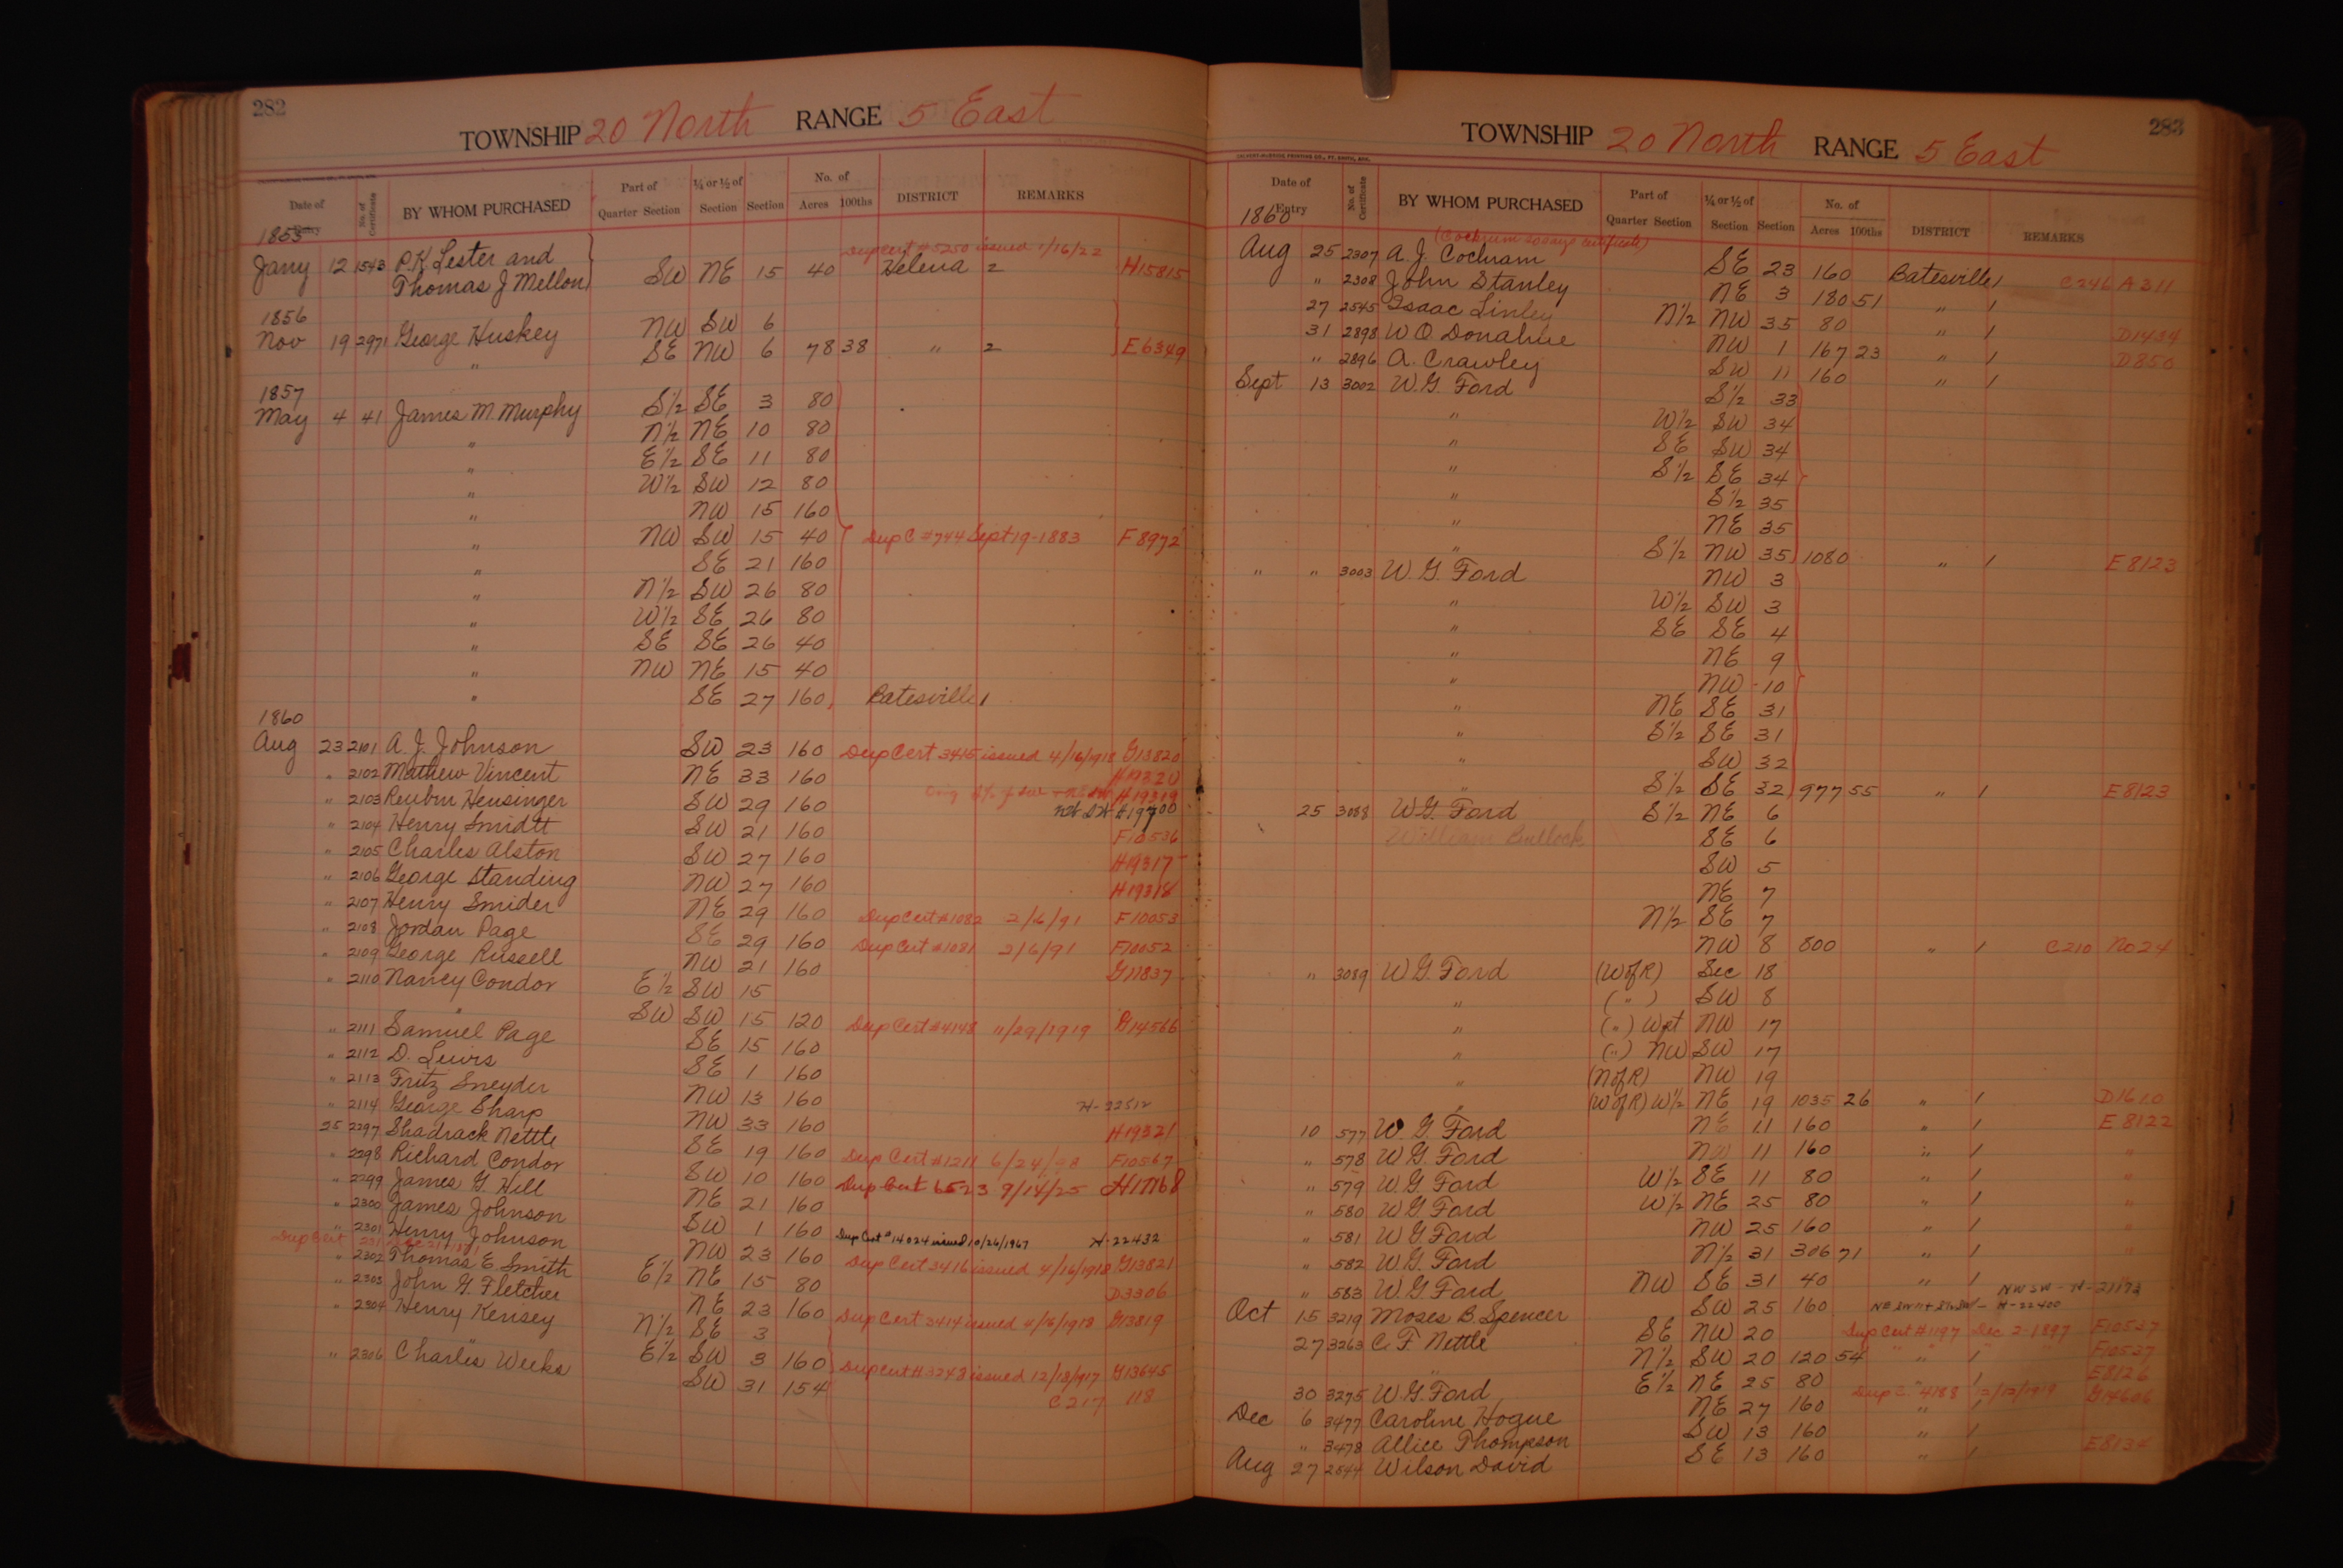 282
TOWNSHIP 20 North RANGE 5 East
Date of Entry No. of Certificate BY WHOM PURCHASED Part of Quarter Section ¼ or ½ of Section Section No. of Acres 100ths DISTRICT REMARKS
1853
Dup Cert # 5250 issued 1/16/22
Jany 12 1543 P.K. Lester and
Thomas J Mellon SW NE 15 40 Helena 2 H15815
1856
Nov 19 2971 George Huskey NW SW 6
" SE NW 6 78 38 " 2 E6349
1857
May 4 41 James M. Murphy S½ SE 3 80
" N½ NE 10 80
" E½ SE 11 80
" W½ SW 12 80
" NW 15 160
" NW SW 15 40 Dup C #744 Sept 19-1883 F8972
" SE 21 160
" N½ SW 26 80
" W½ SE 26 80
" SE SE 26 40
" NW NE 15 40
" SE 27 160 Batesville 1
1860
Aug 23 2101 A.J. Johnson SW 23 160 Dup Cert 3415 issued 4/16/1918 G13820
" 2102 Mathew Vincent NE 33 160 H19320
" 2103 Reubin Hensinger SW 29 160 H19319
" 2104 Henry Smidtt SW 21 160 F10536
" 2105 Charles Alston SW 27 160 H19317
" 2106 George Standing NW 27 160 H19318
" 2107 Henry Smider NE 29 160 Dup Cert #1082 2/6/91 F10053
" 2108 Jordan Page SE 29 160 Dup Cert #1081 2/6/91 F10052
" 2109 George Russell NW 21 160 G11837
" 2110 Nancy Condor E½ SW 15
" SW SW 15 120 Dup Cert #4148 11/29/1919 G14566
" 2111 Samuel Page SE 15 160
" 2112 D. Lewis SE 1 160
" 2113 Fritz Sneyder NW 13 160 H-22512
" 2114 George Sharp NW 33 160 H19321
25 2297 Shadrack Nettle SE 19 160 Dup Cert #1211 6/24/98 F10567
" 2298 Richard Condor SW 10 160 Dup Cert 6523 9/14/25 H17168
" 2299 James G. Hill NE 21 160
" 2300 James Johnson SW 1 160 Dup Cert #14024 issued 10/26/1967 H-22432
" 2301 Henry Johnson NW 23 160 Dup Cert 3416 issued 4/16/1918 G13821
Dup Cert
" 2302 Thomas E. Smith E½ NE 15 80 D3306
" 2303 John G. Fletcher NE 23 160 Dup Cert 3414 issued 4/16/1918 G13819
" 2304 Henry Kerisey N½ SE 3
" E½ SW 3 160 Dup Cert # 3248 issued 12/18/1917 G13645
" 2306 Charlis Weeks SW 31 154 C217 118
283
TOWNSHIP 20 North RANGE 5 East
Date of Entry No. of Certificate BY WHOM PURCHASED Part of Quarter Section ¼ or ½ of Section Section No. of Acres 100ths DISTRICT REMARKS
1860
Aug 25 2307 A.J. Cochram SE 23 160 Batesville 1 C246 A311
" 2308 John Stanley NE 3 180 51 " 1
27 2545 Isaac Linley N½ NW 35 80 " 1 D1434
31 2898 W O Donahue NW 1 167 23 " 1 D850
" 2896 A. Crawley SW 11 160 " 1
Sept 13 3002 W.G. Ford S½ 33
" W½ SW 34
" SE SW 34
" S½ SE 34
" S½ 35
" NE 35
" S½ NW 35 1080 " 1 E8123
" " 3003 W.G. Ford NW 3
" W½ SW 3
" SE SE 4
" NE 9
" NW 10
" NE SE 31
" S½ SE 31
" SW 32
" S½ SE 32 977 55 " 1 E8123
25 3088 W.G. Ford S½ NE 6
William Bullock SE 6
SW 5
NE 7
N½ SE 7
NW 8 800 " 1 C210 No 24
" 3089 W.G. Ford (W of R) Sec 18
" ( " ) SW 8
" ( " ) W pt NW 17
" ( " ) NW SW 17
" (N of R) NW 19
" (W of R) W½ NE 19 1035 26 " 1 D1610
10 577 W.G. Ford NE 11 160 " 1 E8122
" 578 W.G. Ford NW 11 160 " 1 "
" 579 W.G. Ford W½ SE 11 80 " 1 "
" 580 W.G. Ford W½ NE 25 80 " 1 "
" 581 W.G. Ford NW 25 160 " 1 "
" 582 W.G. Ford N½ 31 306 71 " 1 "
" 583 W.G. Ford NW SE 31 40 " 1
Oct 15 3219 Moses B. Spencer SW 25 160 H-22400
27 3263 C.F. Nettle SE NW 20 Dup Cert #1197 Dec 2-1897 F10537
" N½ SW 20 120 54 " " 1 F10537
30 3275 W.G. Ford E½ NE 25 80 " 1 E8126
Dec 6 3477 Caroline Hogue NE 27 160 Dup C. 4188 G14606
" 3478 Allice Thompson SW 13 160 " 1
Aug 27 2544 Wilson David SE 13 160 " 1 E8134